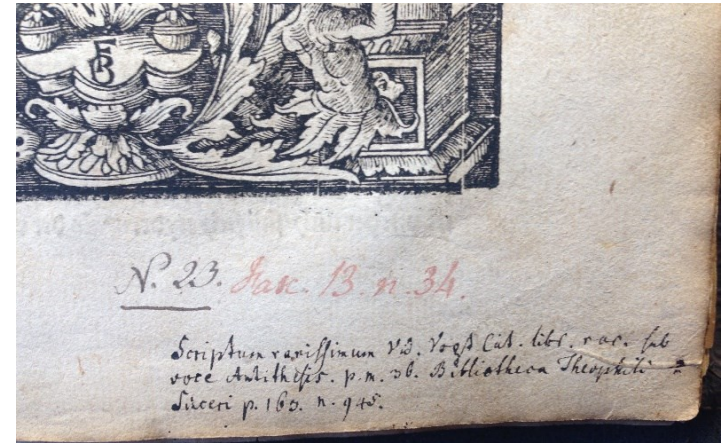 FB
N. 23. Fasc. 13. n. 34.
Scriptum rarissimum Vid. Vogt Cat. libr. rar. sub
voce Antithesis. p. m. 36. Bibliotheca Theophili
Sinceri p. 163. n. 945.